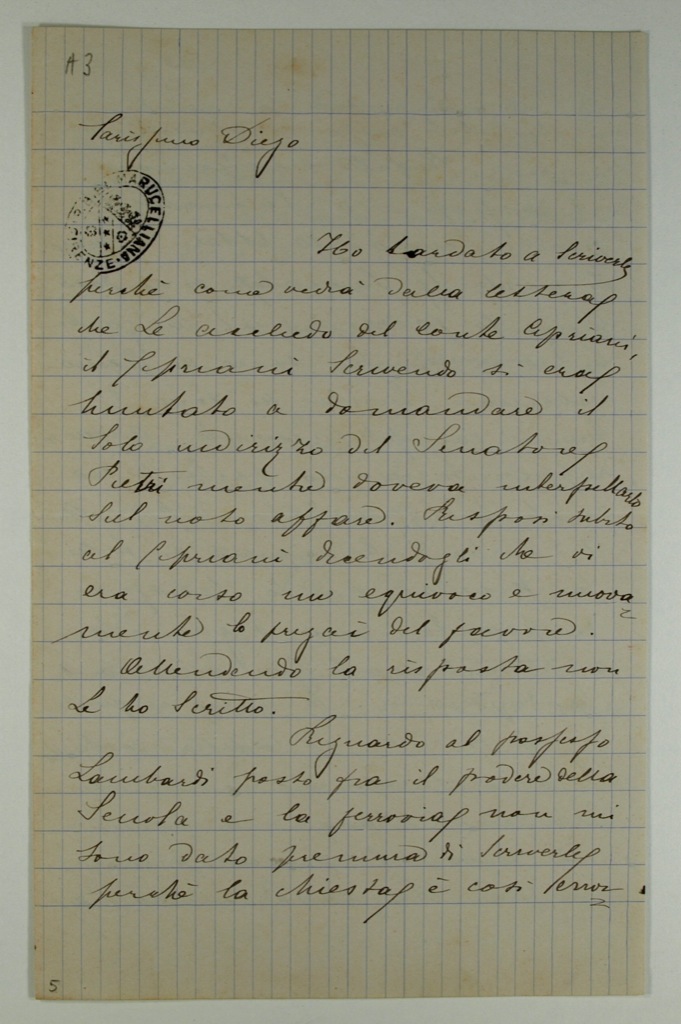 A3
Carissimo Diego
MARUCELLIANA
Ho tardato a scriverle
perchè come vedrà dalla lettera
che Le accludo del conte Cipriani,
il Cipriani scrivendo si era
limitato a domandare il
solo indirizzo del Senatore
Pietri mentre doveva interpellarlo
sul noto affare. Risposi subito
al Cipriani dicendogli che vi
era corso un equivoco e nuova
mente lo pregai del favore.
Attendendo la risposta non
Le ho scritto.
Riguardo al
Lambardi posto fra il podere della
Scuola e la ferrovia non mi
sono dato premura di scriverle
perchè la chiesta è così
5